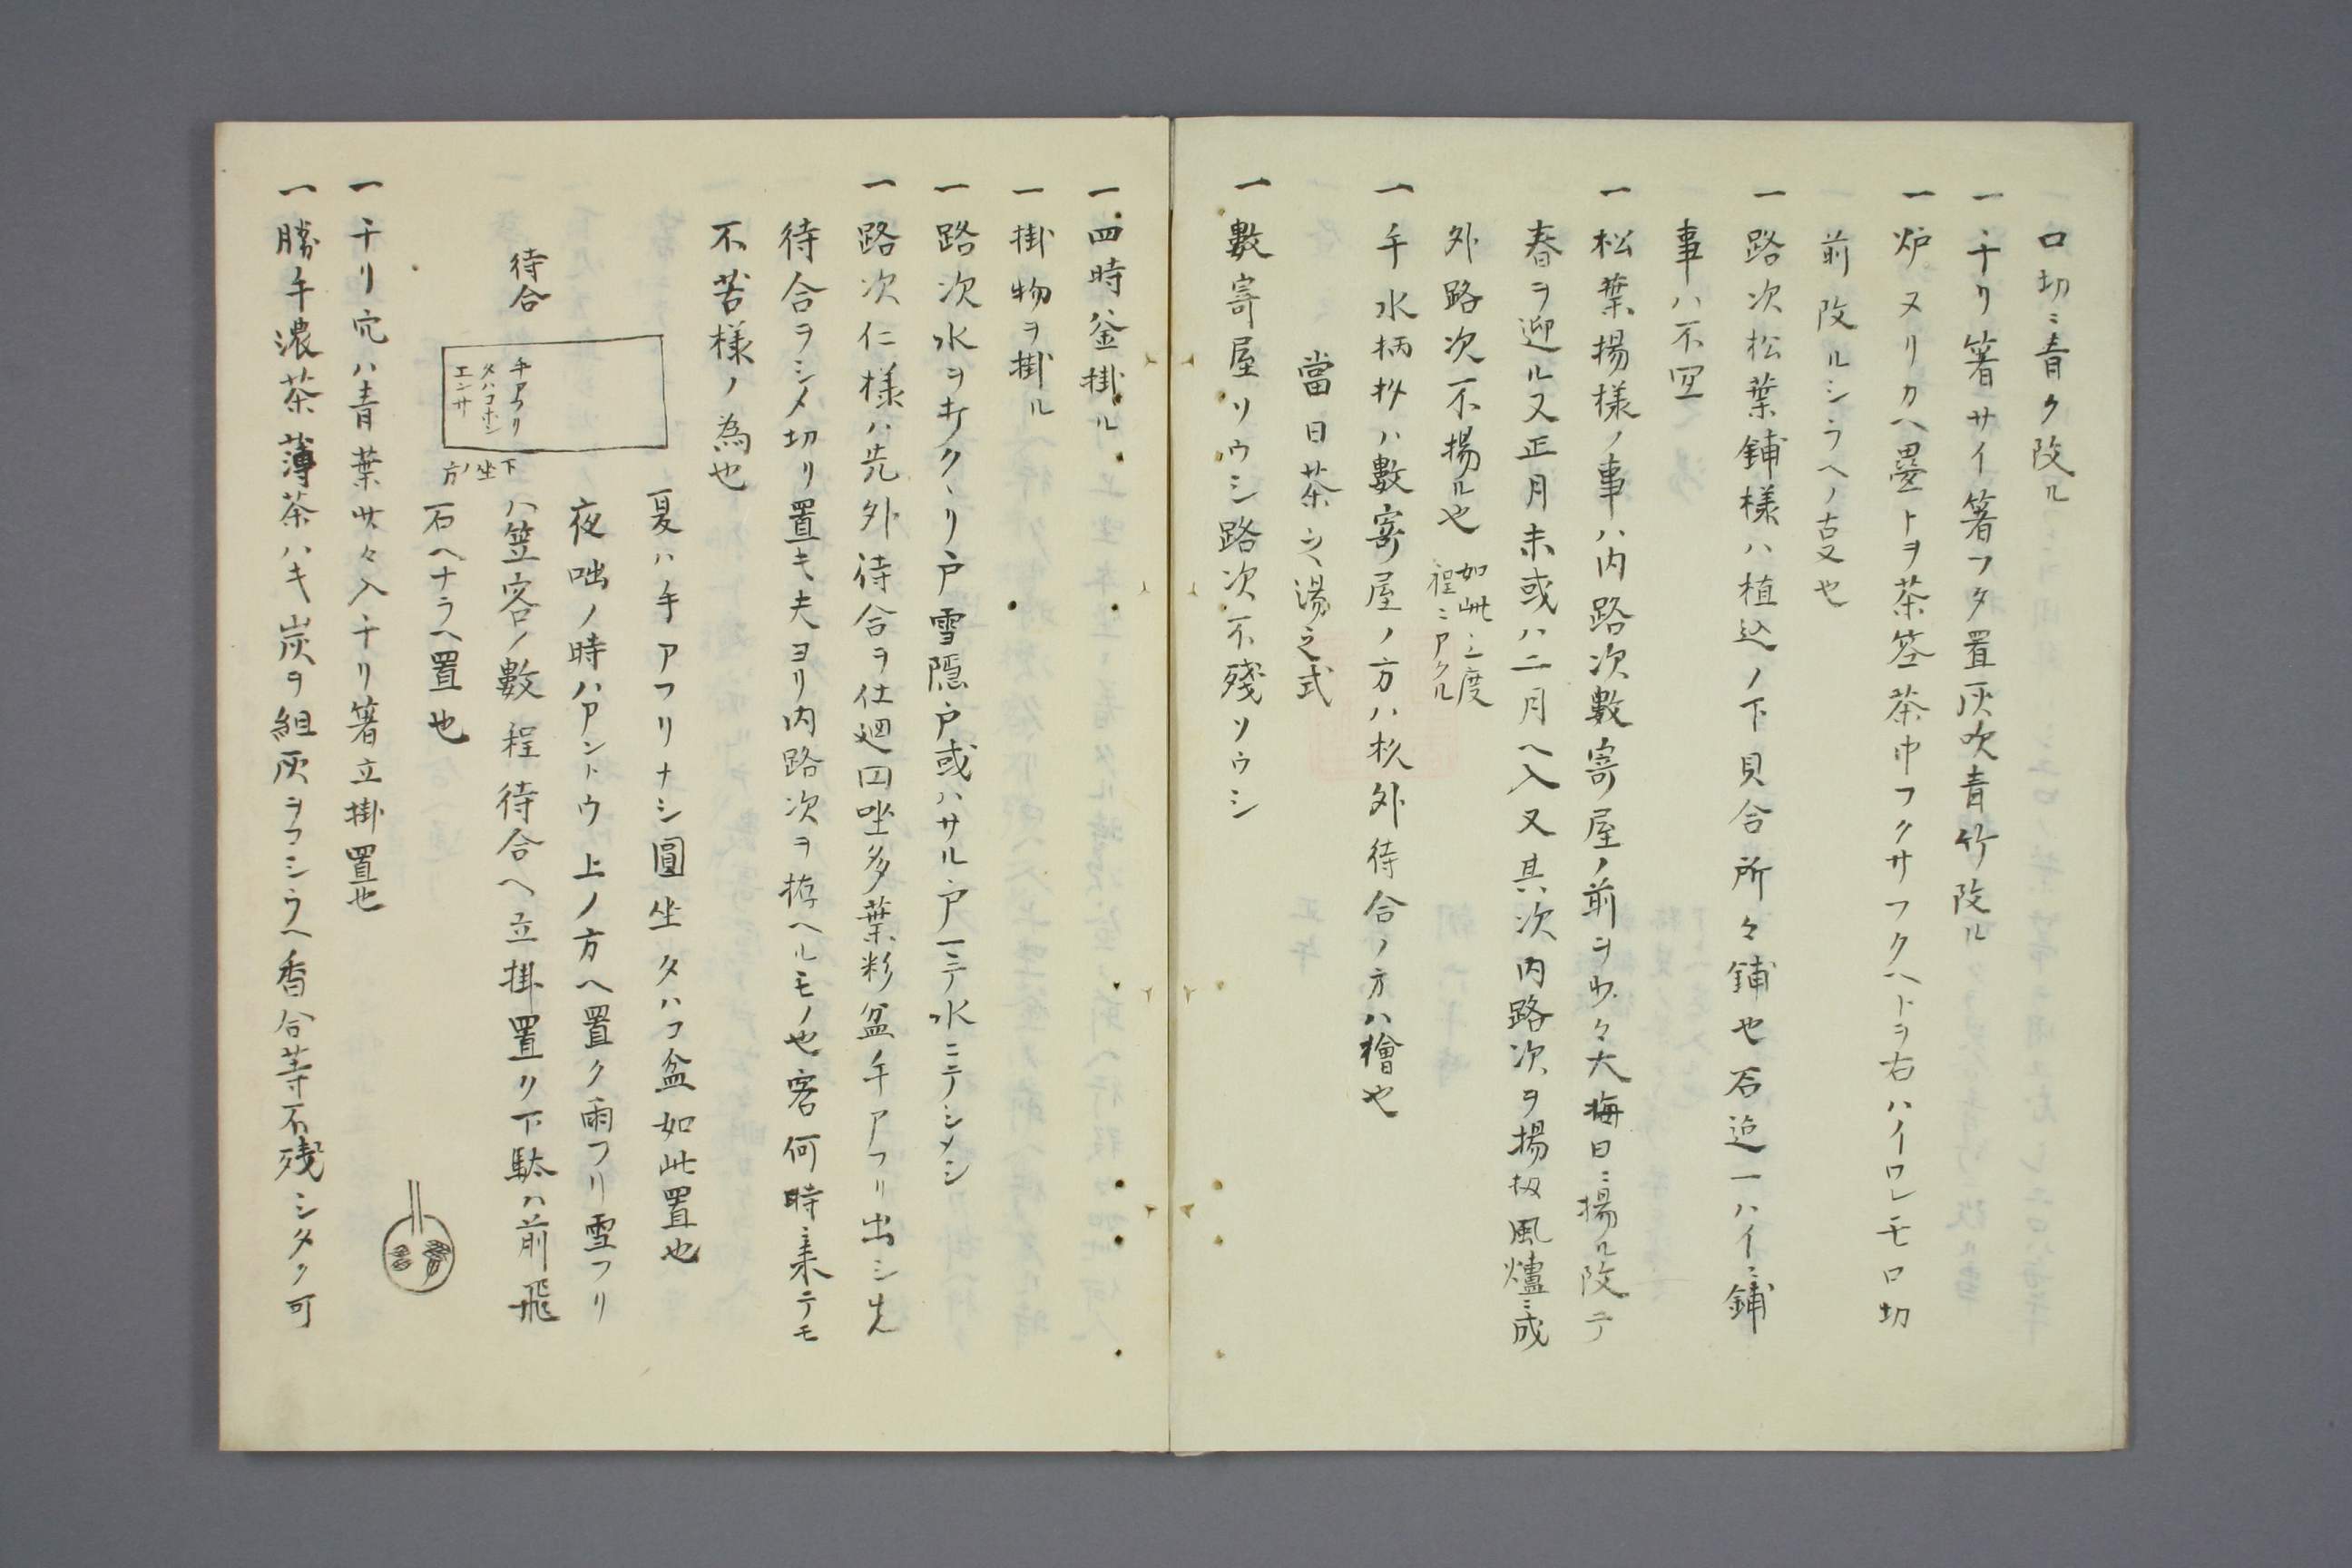 口切ニ青ク改ル
一 チリ箸サイ箸フタ置灰吹青竹改ル
一 炉ヌリカヘ畳トヲ茶筌茶巾フクサフクヘトヲ右ハイロレモ口切
前改ルシラヘノ古又也
一 路次松葉鋪様ハ植込ノ下貝合所々鋪也石迄一ハイニ鋪
事ハ不宜
一 松葉揚様ノ事ハ内路次數寄屋ノ前ヲ少々大晦日ニ揚ル改テ
春ヲ迎ル又正月末或ハ二月ヘ入又其次内路次ヲ揚扨風爐ニ成
外路次不揚ル也 如此三度
程ニアクル
一 手水柄杓ハ數寄屋ノ方ハ杉外待合ノ方ハ檜也
當日茶之湯之式
一 數寄屋ソウシ路次不殘ソウシ
一 四時釜掛ル
一 掛物ヲ掛ル
一 路次水ヲ打クヽリ戸雪隠戸或ハサル戸ニテ水ニテシメシ
一 路次仁様ハ先外待合ヲ仕廻円坐多葉粉盆手アフリ出シ先
待合ヲシメ切リ置キ夫ヨリ内路次ヲ拵ヘルモノ也客何時來テモ
不苦様ノ為也
待合
手アフリ
タハコホン
エンサ
下坐ノ方
夏ハ手アフリナシ圓坐タハコ盆如此置也
夜咄ノ時ハアントウ上ノ方ヘ置ク雨フリ雪フリ
ハ笠客ノ數程待合ヘ立掛置リ下駄ハ前飛
石ヘナラヘ置也
一 チリ穴ハ青葉少々入チリ箸立掛置也
一 勝手濃茶薄茶ハキ炭ヲ組灰ヲコシラヘ香合等不殘シタク可